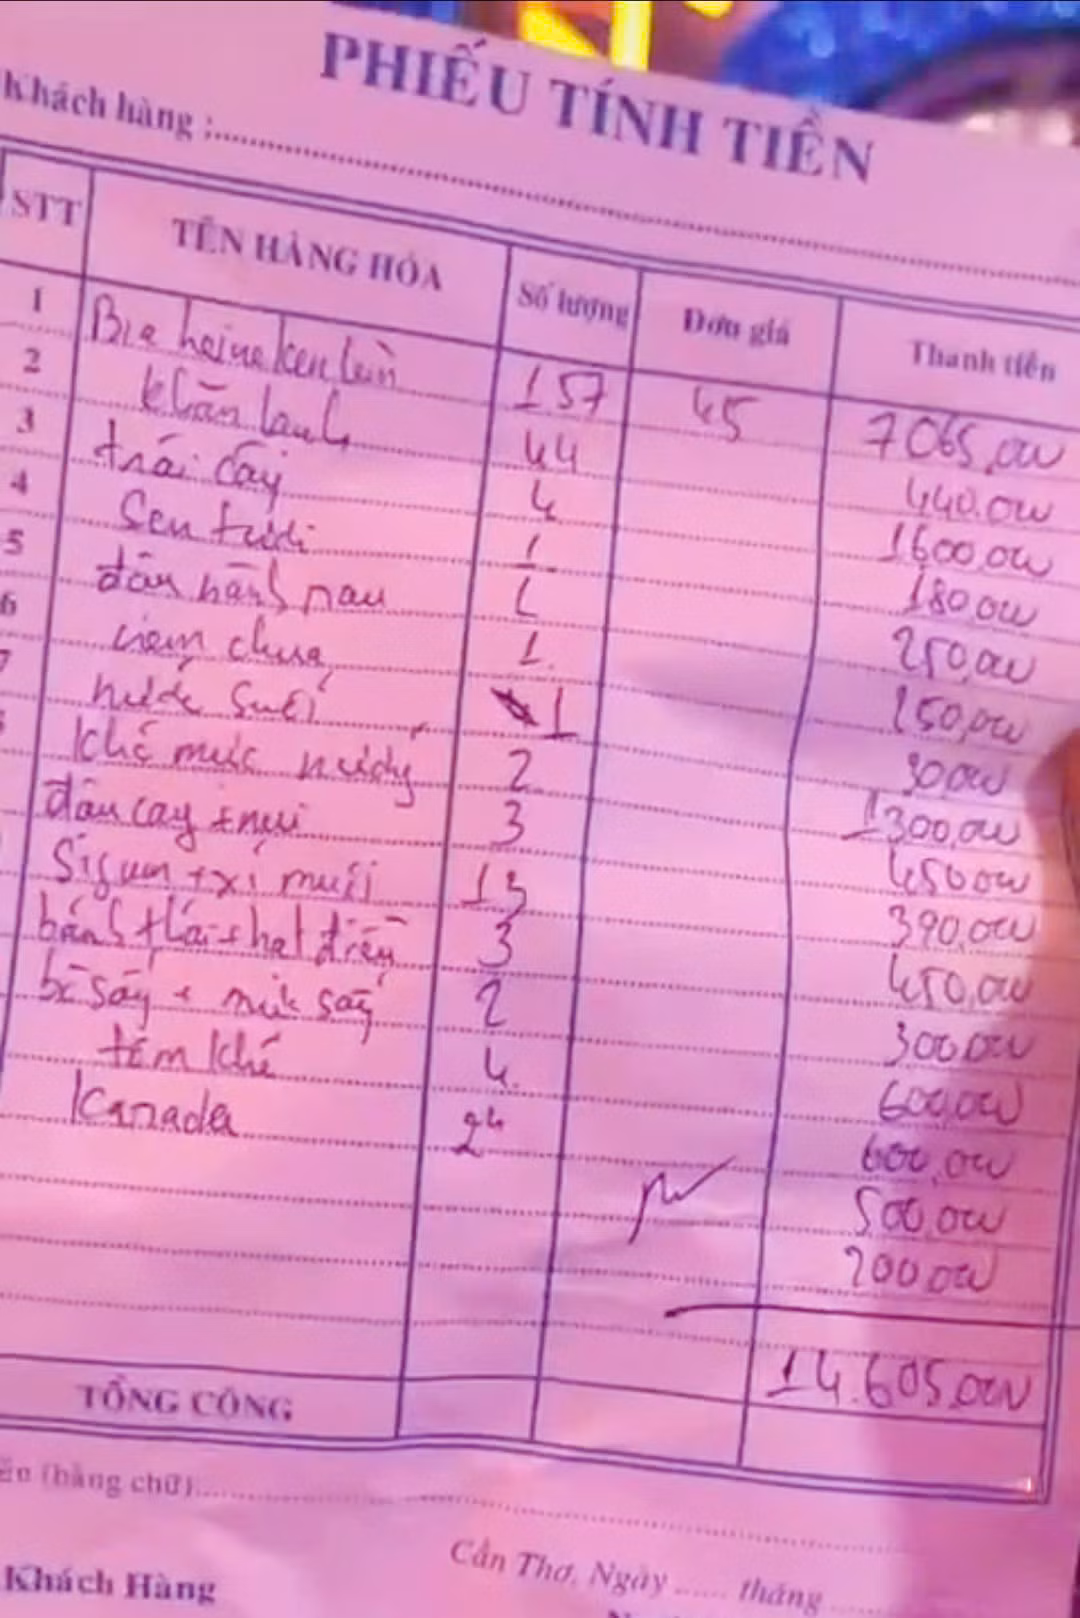 PHIẾU TÍNH TIỀN
Khách hàng :
STT TÊN HÀNG HÓA Số lượng Đơn giá Thành tiền
1 Bia heineken lùn 157 45 7065,000
2 khăn lạnh 44 440.000
3 trái cây 4 1600.000
4 Sen tươi 1 180,000
5 đậu hành nau 1 250,000
6 nem chua 1. 150,000
7 nước suối 1 30000
8 khô mực nướng 2 1300,000
đậu cay + nui 3 450000
Sigum + xí muội 13 390,000
bánh tlái + hạt điều 3 450,000
bò sấy + mít sấy 2 300000
tôm khô 4. 600,000
Kanada 24 600,000
500,000
200,000
14.605,000
TỔNG CỘNG
(bằng chữ)
Cần Thơ, Ngày ...... tháng
Khách Hàng